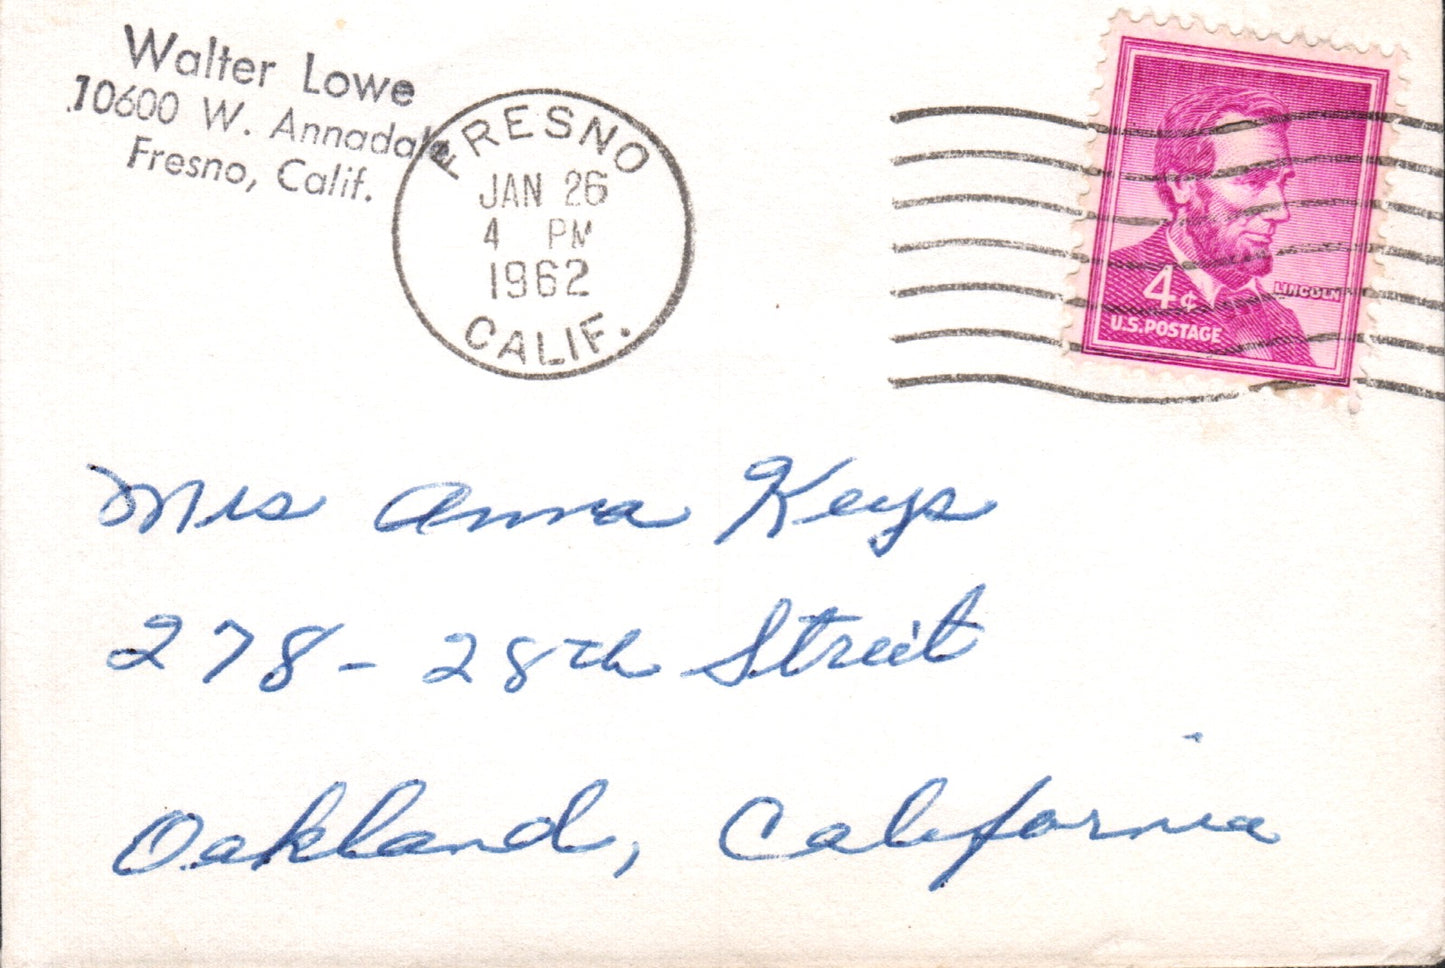 Walter Lowe
10600 W. Annadale
Fresno, Calif.
FRESNO
JAN 26
4 PM
1962
CALIF.
4¢
LINCOLN
U.S. POSTAGE
Mrs Anna Keys
278 - 28th Street
Oakland, California